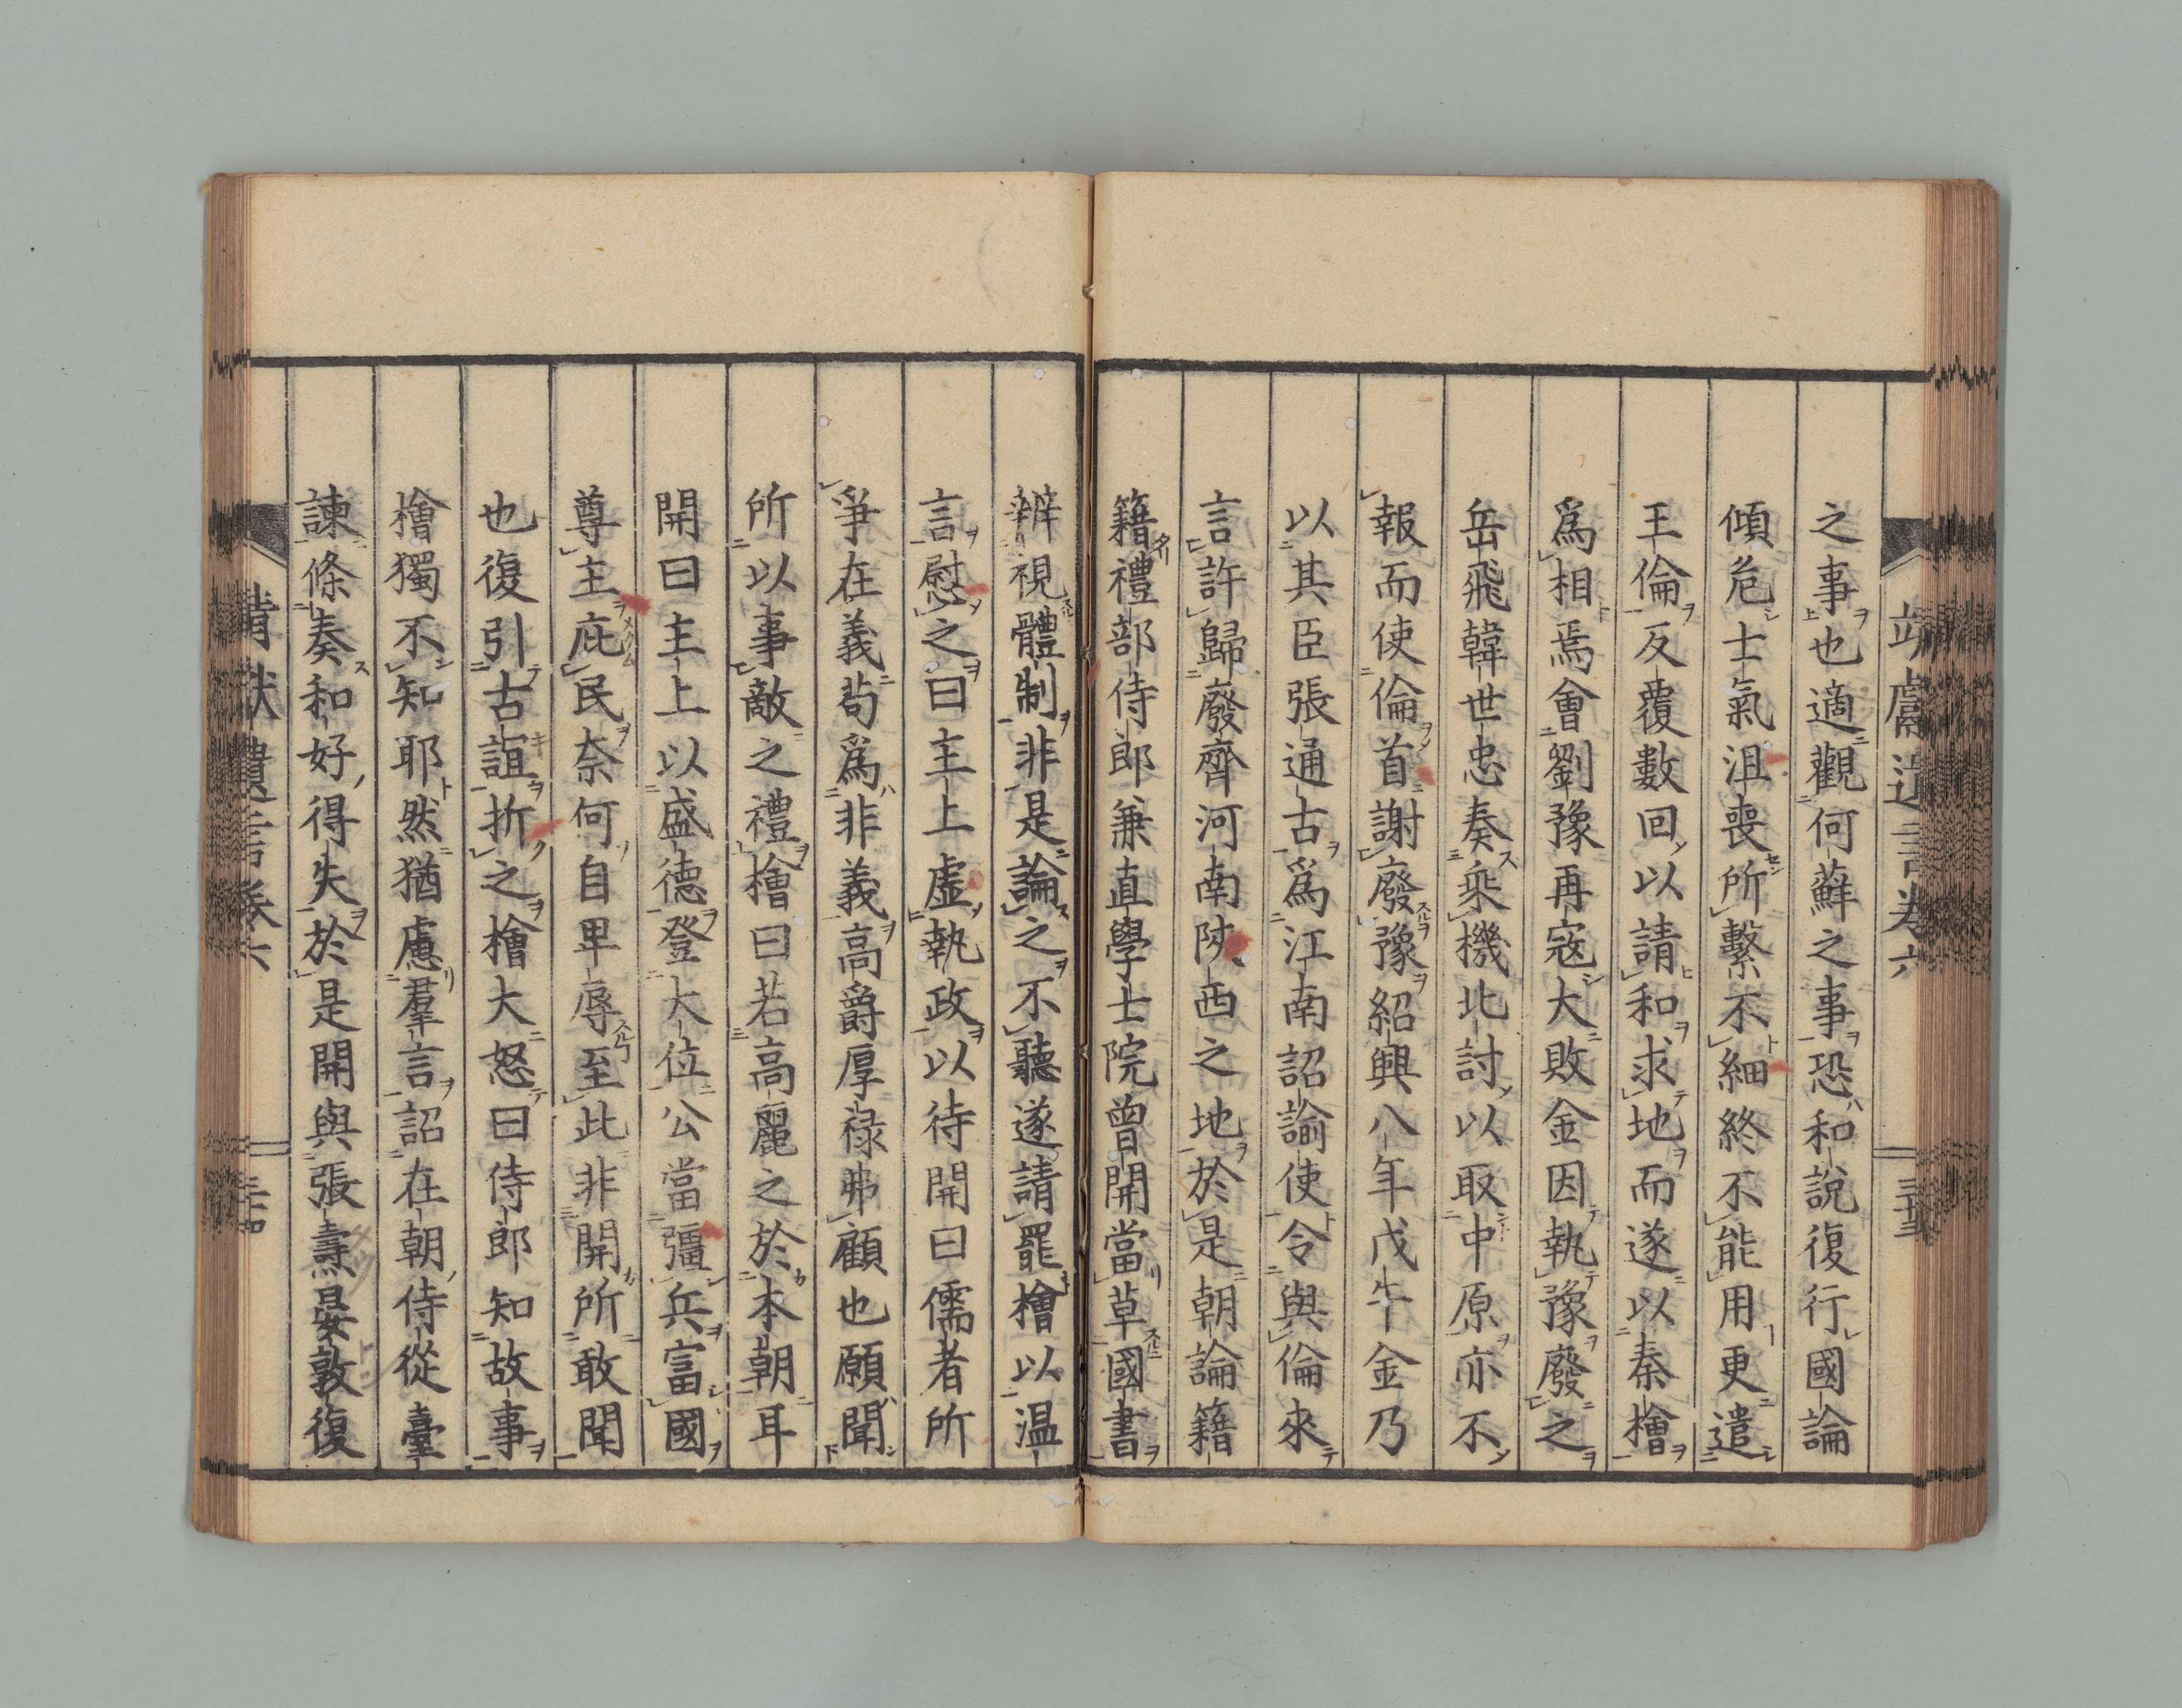 靖獻遺言卷六
之事也適觀何蘚之事恐和說復行國論
傾危士氣沮喪所繫不細終不能用更遣
王倫反覆數回以請和求地而遂以秦檜
爲相焉會劉豫再寇大敗金因執豫廢之
岳飛韓世忠奏乘機北討以取中原亦不
報而使倫首謝廢豫紹興八年戊午金乃
以其臣張通古爲江南詔諭使令與倫來
言許歸廢齊河南陝西之地於是朝論籍
籍禮部侍郎兼直學士院曾開當草國書
辨視體制非是論之不聽遂請罷檜以溫
言慰之曰主上虛執政以待開曰儒者所
爭在義苟爲非義高爵厚祿弗顧也願聞
所以事敵之禮檜曰若高麗之於本朝耳
開曰主上以盛德登大位公當彊兵富國
尊主庇民奈何自卑辱至此非開所敢聞
也復引古誼折之檜大怒曰侍郎知故事
檜獨不知耶然猶慮羣言詔在朝侍從臺
諫條奏和好得失於是開與張燾晏敦復
靖獻遺言卷六